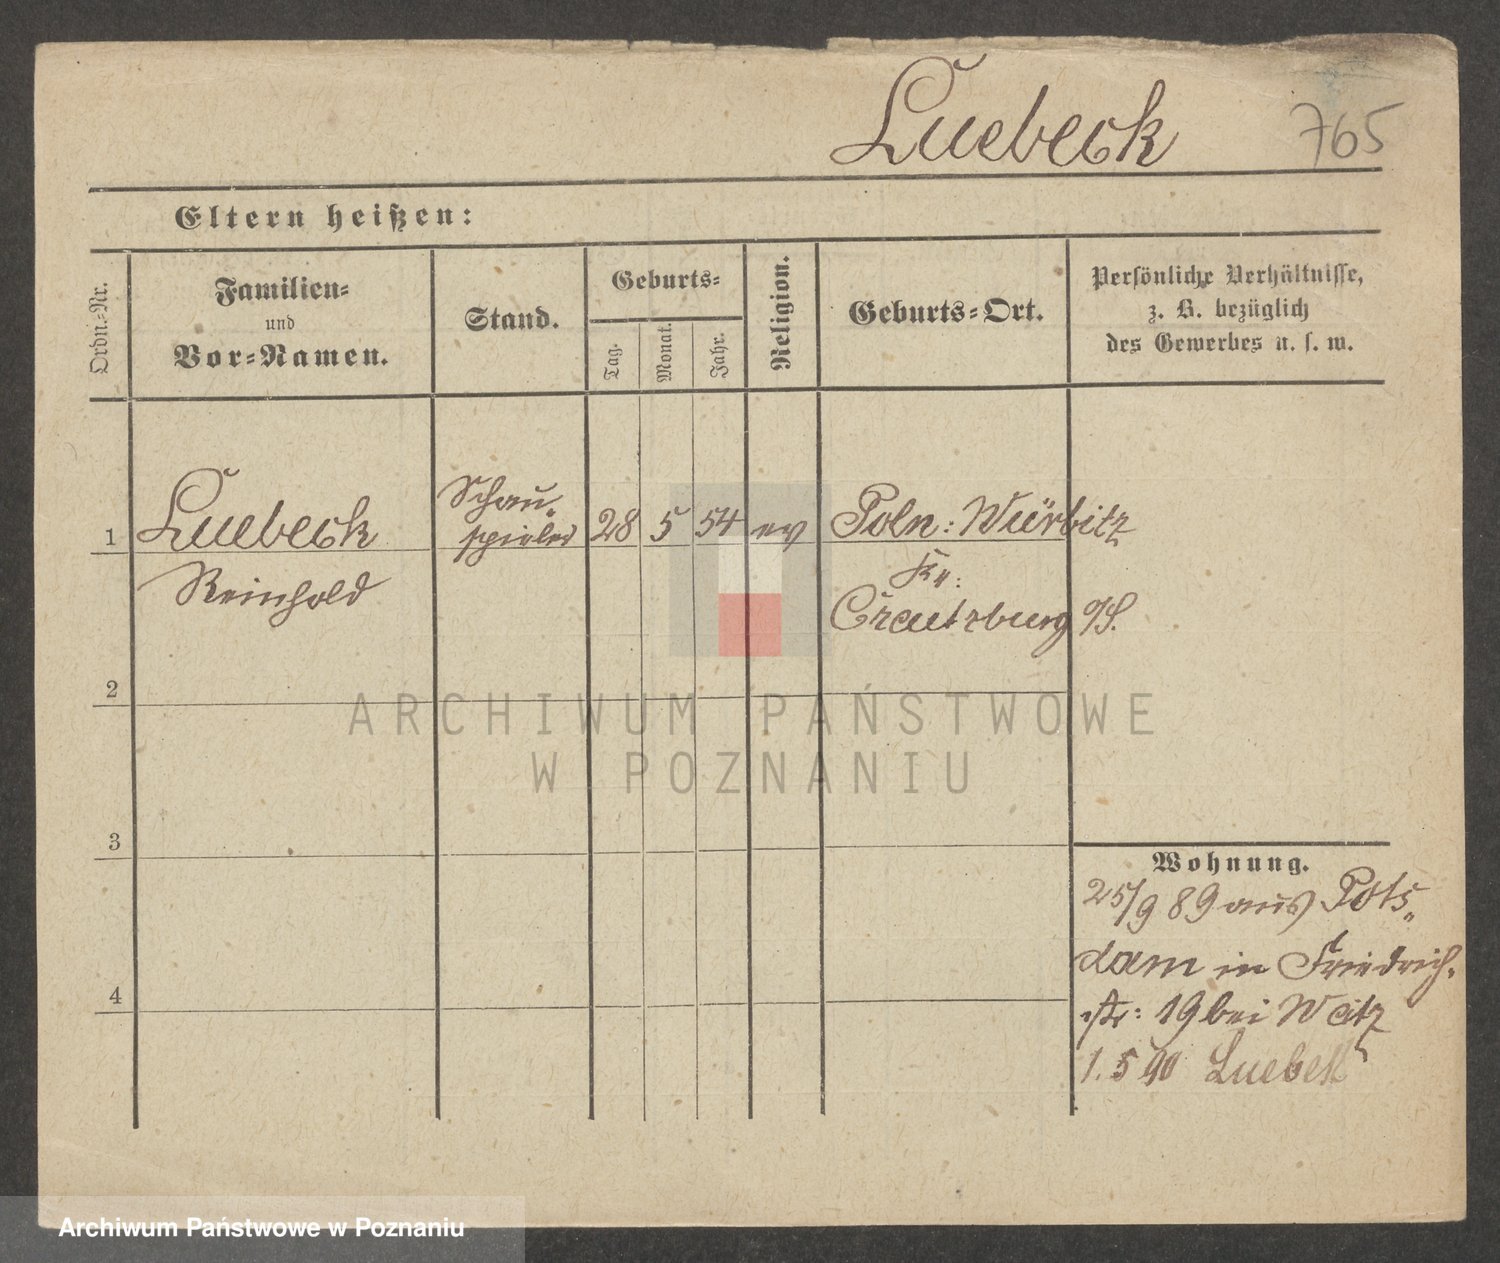 Luebeck
765
Eltern heißen:
Ordn.-Nr.
Familien-
und
Vor-Namen.
Stand.
Geburts-
Tag.
Monat.
Jahr.
Religion.
Geburts-Ort.
Persönliche Verhältnisse,
z. B. bezüglich
des Gewerbes u. s. w.
1
Luebeck
Reinhold
Schau-
spieler
28
5
54
ev
Poln: Würbitz
Kr:
Creutzburg o/S.
2
ARCHIWUM PAŃSTWOWE
W POZNANIU
3
4
Wohnung.
25/9 89 aus Pots-
dam in Friedrich-
str: 19 bei Weitz
1. 5 90 Luebeck
Archiwum Państwowe w Poznaniu